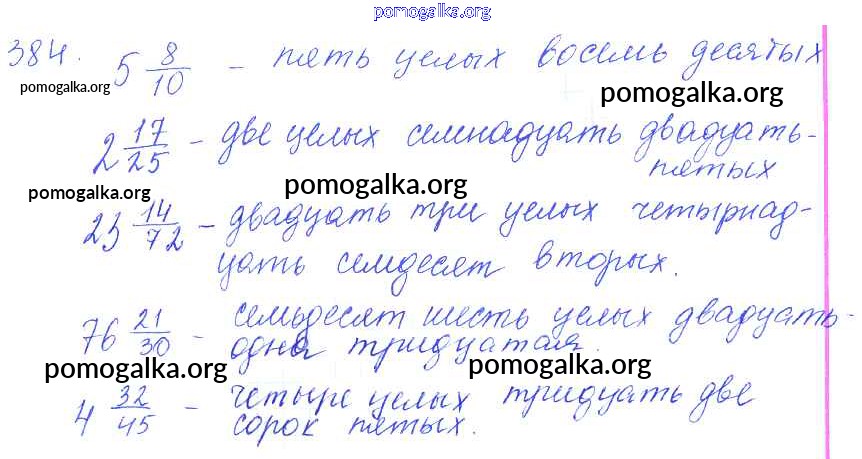 pomogalka.org
384. 5 8/10 – пять целых восемь десятых
pomogalka.org
pomogalka.org
2 17/25 – две целых семнадцать двадцать-
пятых
pomogalka.org
pomogalka.org
23 14/72 – двадцать три целых четырнад-
цать семдесят вторых.
76 21/30 – семьдесят шесть целых двадцать-
одна тридцатая.
pomogalka.org
pomogalka.org
4 32/45 – четыре целых тридцать две
сорок пятых.